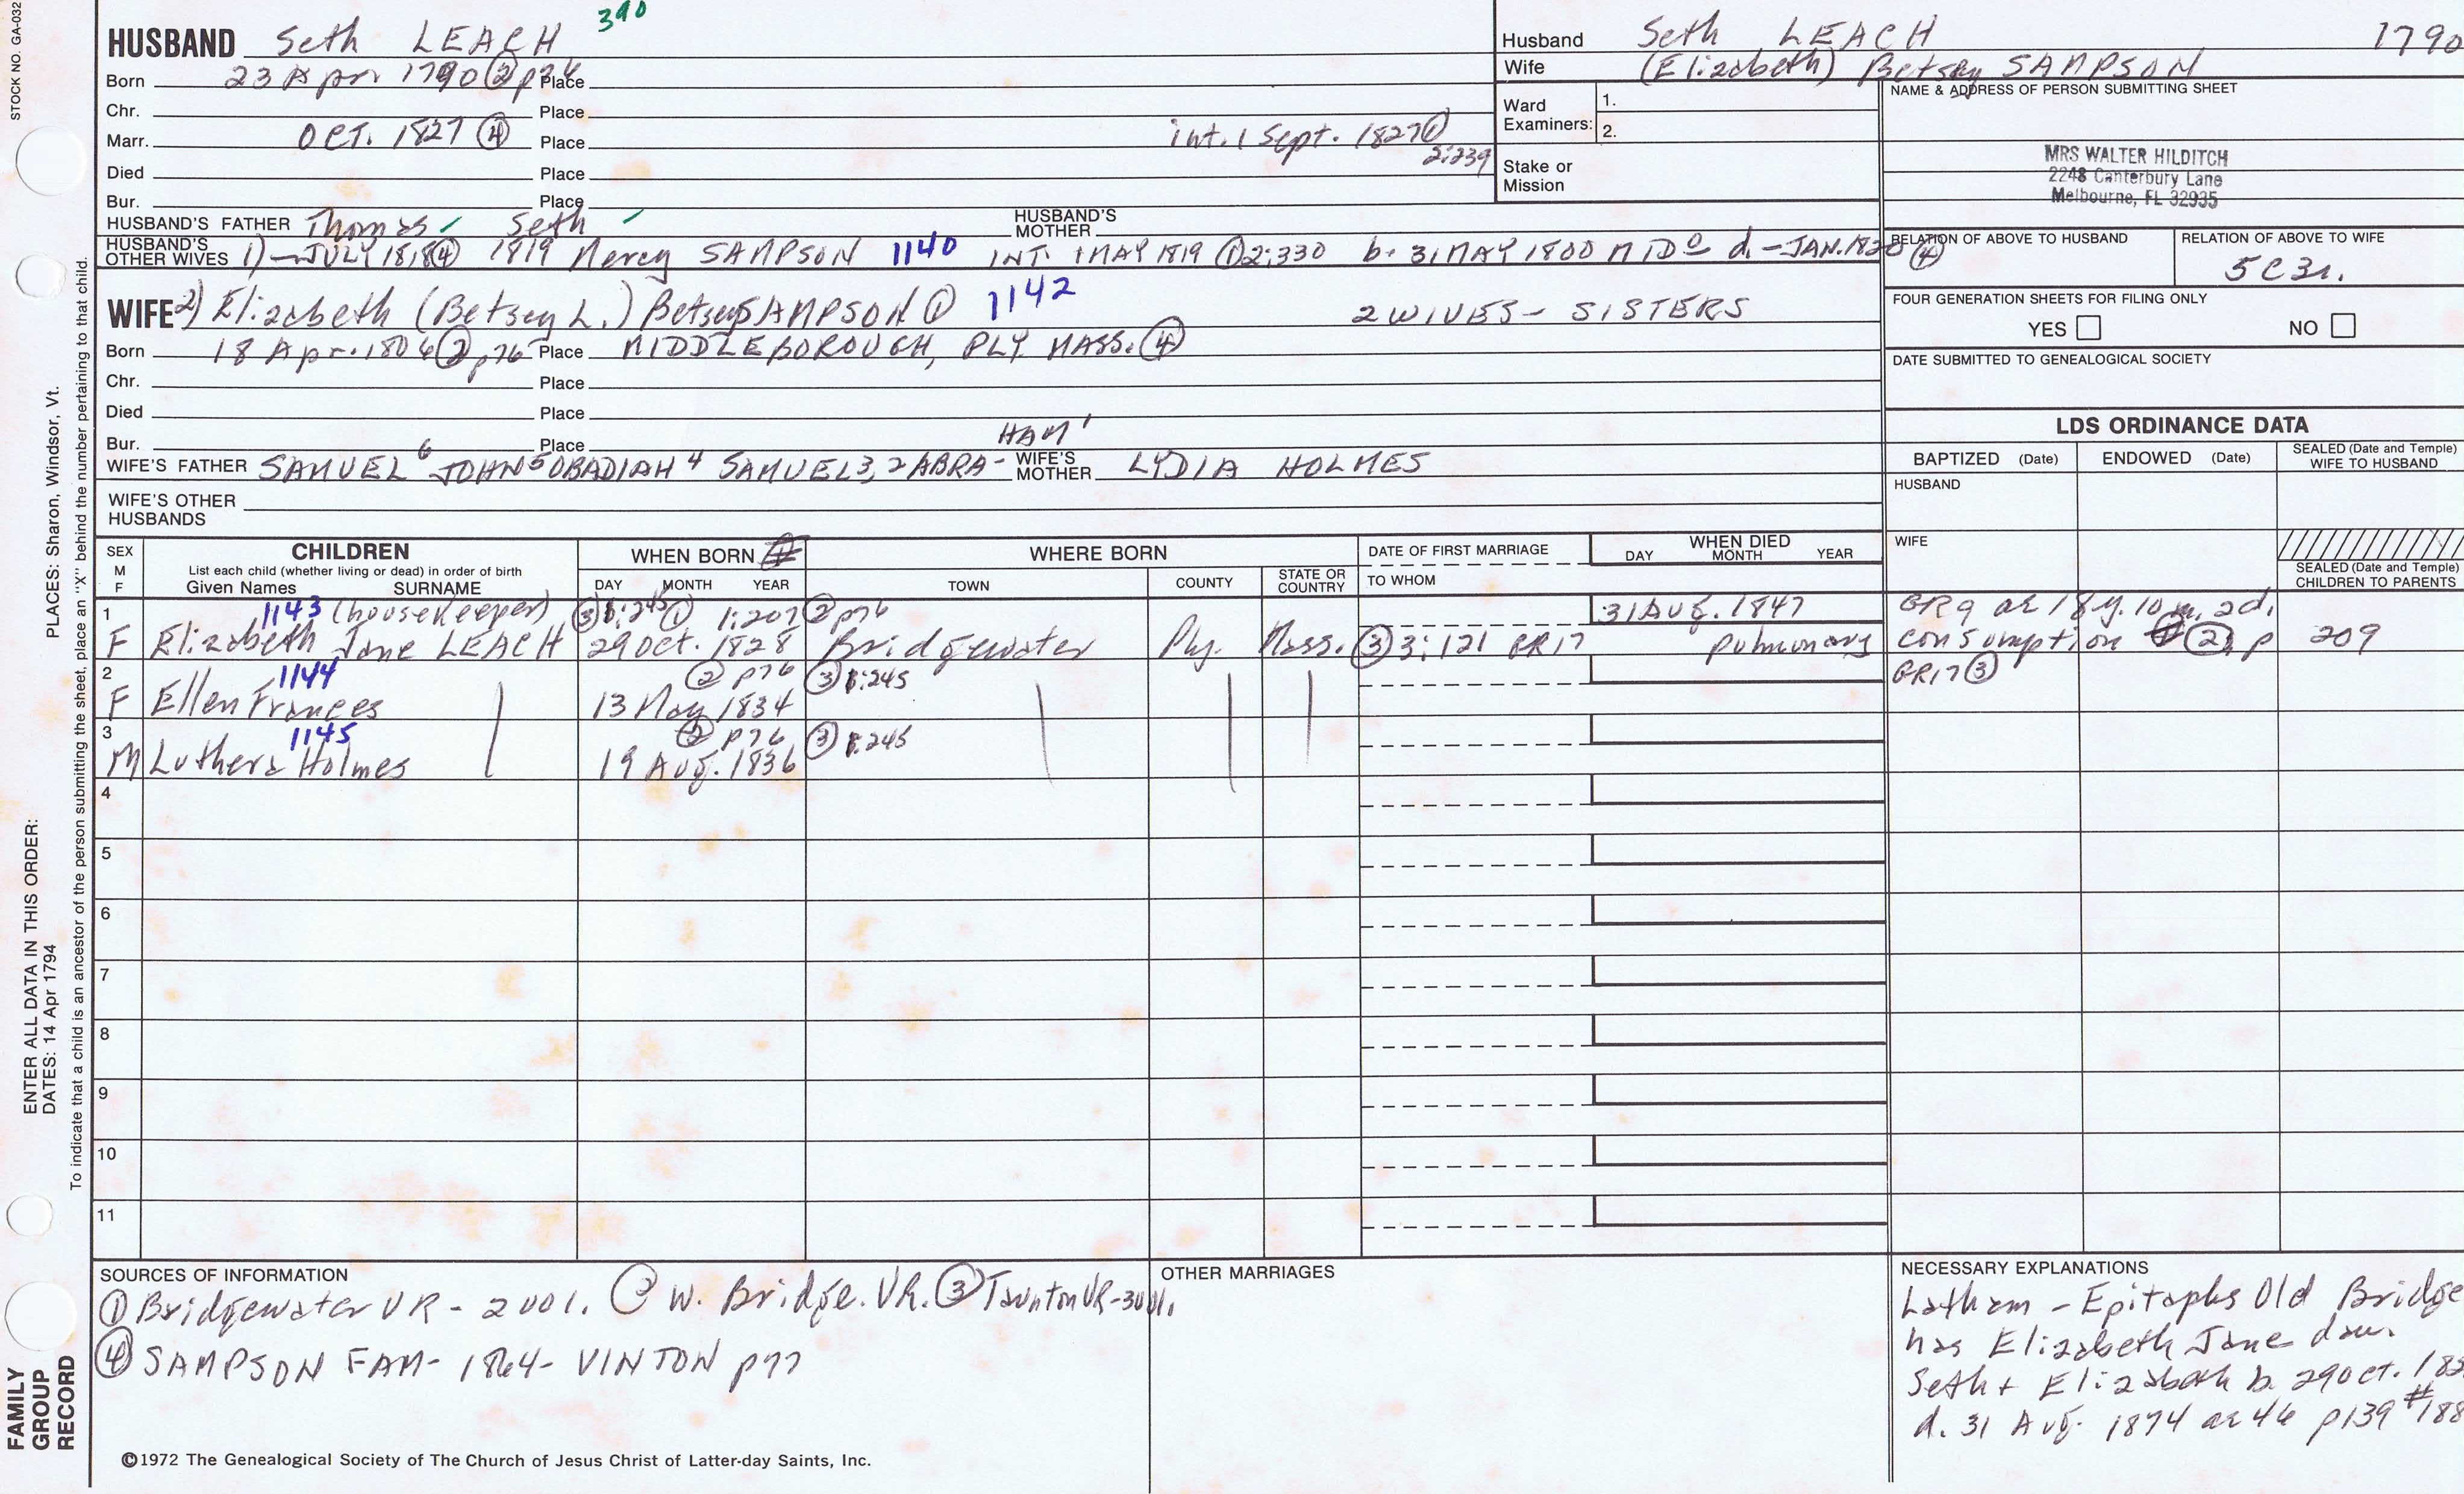 STOCK NO. GA-032
390
HUSBAND Seth LEACH
Born 23 Apr 1790 ② p76 Place
Chr. Place
Marr. OCT. 1827 ④ Place int. 1 Sept. 1827 ① 2:239
Died Place
Bur. Place
HUSBAND'S FATHER Thomas Seth HUSBAND'S MOTHER
HUSBAND'S OTHER WIVES 1) — JULY 1818 ④ 1819 Mercy SAMPSON 1140 INT. 1 MAY 1819 ① 2:330 b. 31 MAY 1800 MIDO d. — JAN. 1820 ④
WIFE 2) Elizabeth (Betsey L.) Betsey SAMPSON ① 1142 2 WIVES - SISTERS
Born 18 Apr. 1806 ② p76 Place MIDDLEBOROUGH, PLY. MASS. ④
Chr. Place
Died Place
Bur. Place
HAM 1
WIFE'S FATHER SAMUEL 6 JOHN 5 OBADIAH 4 SAMUEL 3, 2 ABRA- WIFE'S MOTHER LYDIA HOLMES
WIFE'S OTHER HUSBANDS
Husband Seth LEACH 1790
Wife (Elizabeth) Betsey SAMPSON
Ward Examiners: 1.
2.
Stake or Mission
NAME & ADDRESS OF PERSON SUBMITTING SHEET
MRS WALTER HILDITCH
2248 Canterbury Lane
Melbourne, FL 32935
RELATION OF ABOVE TO HUSBAND RELATION OF ABOVE TO WIFE
5C3r.
FOUR GENERATION SHEETS FOR FILING ONLY
YES NO
DATE SUBMITTED TO GENEALOGICAL SOCIETY
LDS ORDINANCE DATA
BAPTIZED (Date) ENDOWED (Date) SEALED (Date and Temple) WIFE TO HUSBAND
HUSBAND
WIFE
SEALED (Date and Temple) CHILDREN TO PARENTS
SEX M F
CHILDREN
List each child (whether living or dead) in order of birth
Given Names SURNAME
WHEN BORN
DAY MONTH YEAR
WHERE BORN
TOWN COUNTY STATE OR COUNTRY
DATE OF FIRST MARRIAGE
TO WHOM
WHEN DIED
DAY MONTH YEAR
1 1143 (housekeeper) ③ 1:245 ① 1:207 ② p76 31 AUG. 1847 GR9 ae 18 y. 10 m. 2 d.
F Elizabeth Jane LEACH 29 Oct. 1828 Bridgewater Ply. Mass. ③ 3:121 GR17 pulmonary consumption ② p 209
2 1144 ② p76 ③ 1:245 GR17 ③
F Ellen Frances 13 May 1834
3 1145 ② p76 ③ 1:245
M Luthera Holmes 19 Aug. 1836
4
5
6
7
8
9
10
11
SOURCES OF INFORMATION
① Bridgewater VR - 2 vol. ② W. Bridge. VR. ③ Taunton VR - 3 vol.
④ SAMPSON FAM - 1864 - VINTON p77
©1972 The Genealogical Society of The Church of Jesus Christ of Latter-day Saints, Inc.
OTHER MARRIAGES
NECESSARY EXPLANATIONS
Latham - Epitaphs Old Bridge
has Elizabeth Jane dau.
Seth + Elizabeth b. 29 Oct. 182
d. 31 Aug. 1874 ae 46 p139 #188
FAMILY GROUP RECORD
ENTER ALL DATA IN THIS ORDER:
DATES: 14 Apr 1794
PLACES: Sharon, Windsor, Vt.
To indicate that a child is an ancestor of the person submitting the sheet, place an "X" behind the number pertaining to that child.